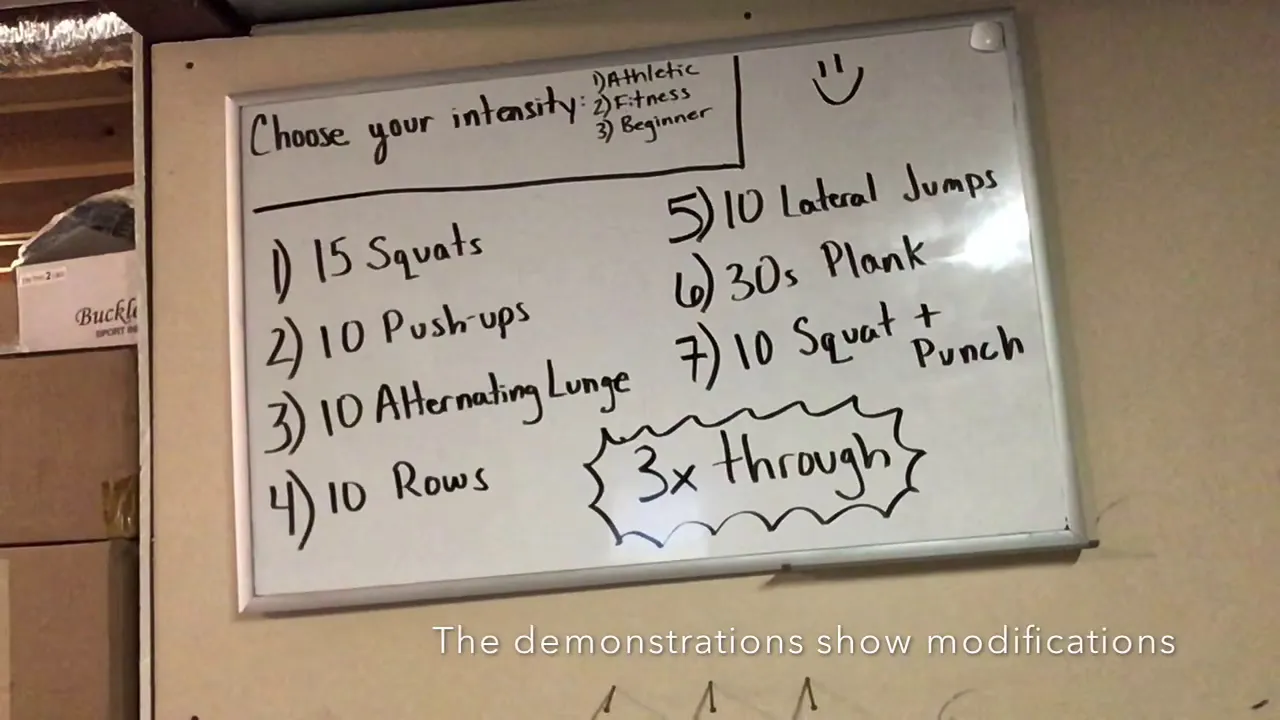 Choose your intensity:
1) Athletic
2) Fitness
3) Beginner
1) 15 Squats
2) 10 Push-ups
3) 10 Alternating Lunge
4) 10 Rows
5) 10 Lateral Jumps
6) 30s Plank
7) 10 Squat +
Punch
3x through
Buckle
SPORT
The demonstrations show modifications